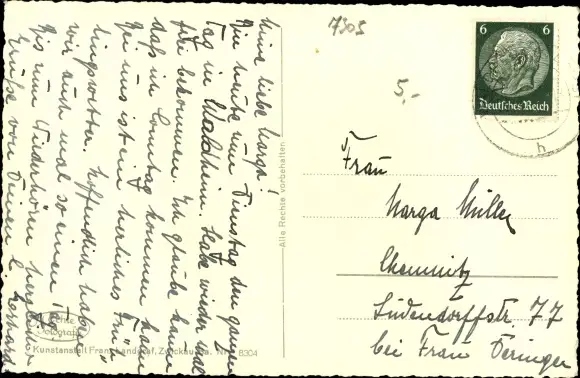 Meine liebe Marga!
Bin heute am Dienstag den ganzen
Tag in Waldheim. Habe wieder viel
zu bekommen. Ich glaube kaum
daß ich Sonntag kommen kann
Bei uns ist ein herrliches Früh-
lingswetter. Hoffentlich haben
wir auch mal so einen Tag
Bis zum Wiederhören herzliche
Grüße von Deinem Gerhard
Alle Rechte vorbehalten
Kunstanstalt Franz Landgraf, Zwickau Sa. Nr. 8304
7305
5,-
6 6
Deutsches Reich
Frau
Marga Müller
Chemnitz
Ludendorffstr. 77
bei Frau Beringer